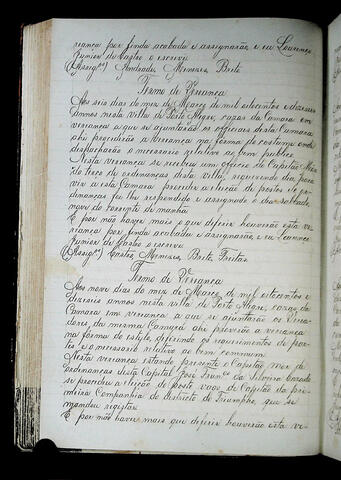 riança por finda acabada e assignarão e eu Lourenço
Junior de Castro o escrevi
(Assig.os) Andrade, Menezes, Brito
Termo de Veriança
Aos seis dias do mez de Março de mil oitocentos e dezaseis
annos nesta villa de Porto Alegre, cazas da Camara em
veriança a que se ajuntarão os officiais desta Camara
ahi procedirão a Veriança na forma do costume onde
despacharão o necessario relativo ao bem publico.
Nesta veriança se recebeu um officio do Capitão Mór
do terço de ordenanças desta villa, requerendo dia para
vir a esta Camara proceder a eleição de postos de or-
denanças foi lhe respondido e assignado o dia sabbado
nove do corrente de manhã
E por não haver mais o que deferir houverão esta ve-
riança por finda acabada e assignarão e eu Lourenço
Junior de Castro o escrevi
(Assig.os) Castro, Menezes, Brito, Freitas
Termo de Veriança
Aos nove dias do mez de Março de mil oitocentos e
dezaseis annos nesta villa de Porto Alegre, cazas da
Camara em veriança a que se ajuntarão os Verea-
dores da mesma Camara ahi proverão a veriança
na forma do estylo, deferindo os requerimentos de par-
tes e o necessario relativo ao bem commum.
Nesta veriança estando presente o Capitão mor de
ordenanças desta Capital José Fran.co da Silveira Cazado
se procedeu a eleição do posto vago de Capitão da pri-
meira Companhia do districto de Triumpho, que se
mandou registar
E por não haver mais que deferir houverão esta ve-